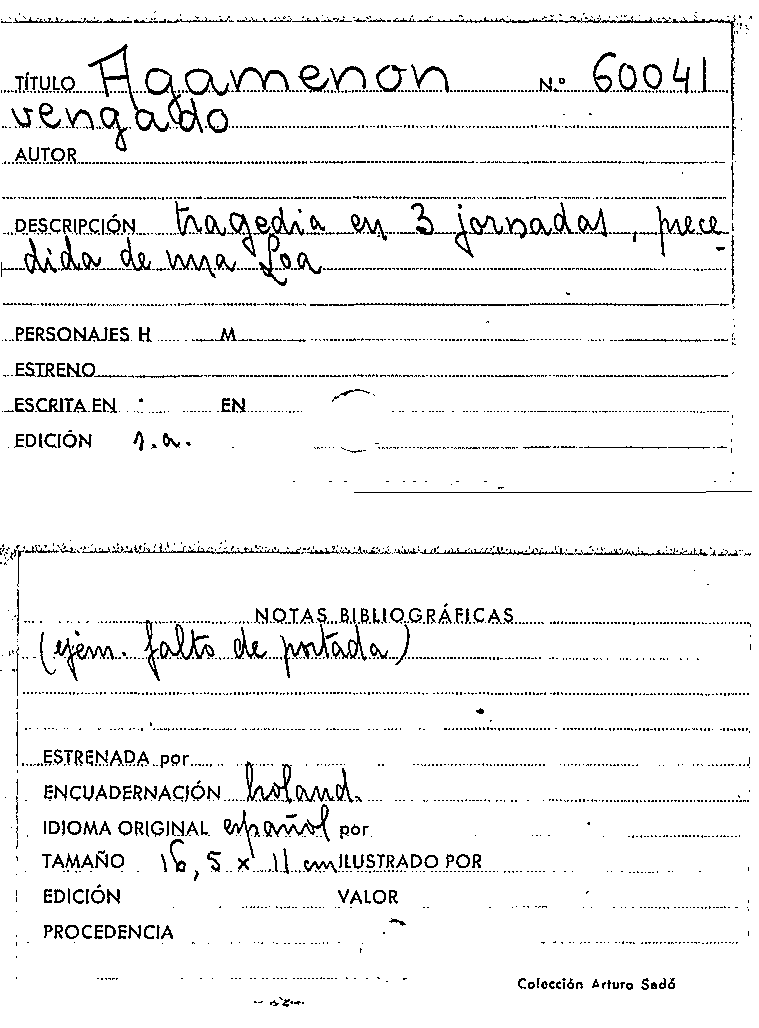 TÍTULO Agamenon N.º 60041
vengado
AUTOR
DESCRIPCIÓN tragedia en 3 jornadas, prece-
dida de una Loa
PERSONAJES H M
ESTRENO
ESCRITA EN EN
EDICIÓN s.a.
NOTAS BIBLIOGRÁFICAS
(ejem. falto de portada)
ESTRENADA por
ENCUADERNACIÓN holand.
IDIOMA ORIGINAL español por
TAMAÑO 16,5 x 11 cm ILUSTRADO POR
EDICIÓN VALOR
PROCEDENCIA
Colección Arturo Sedó